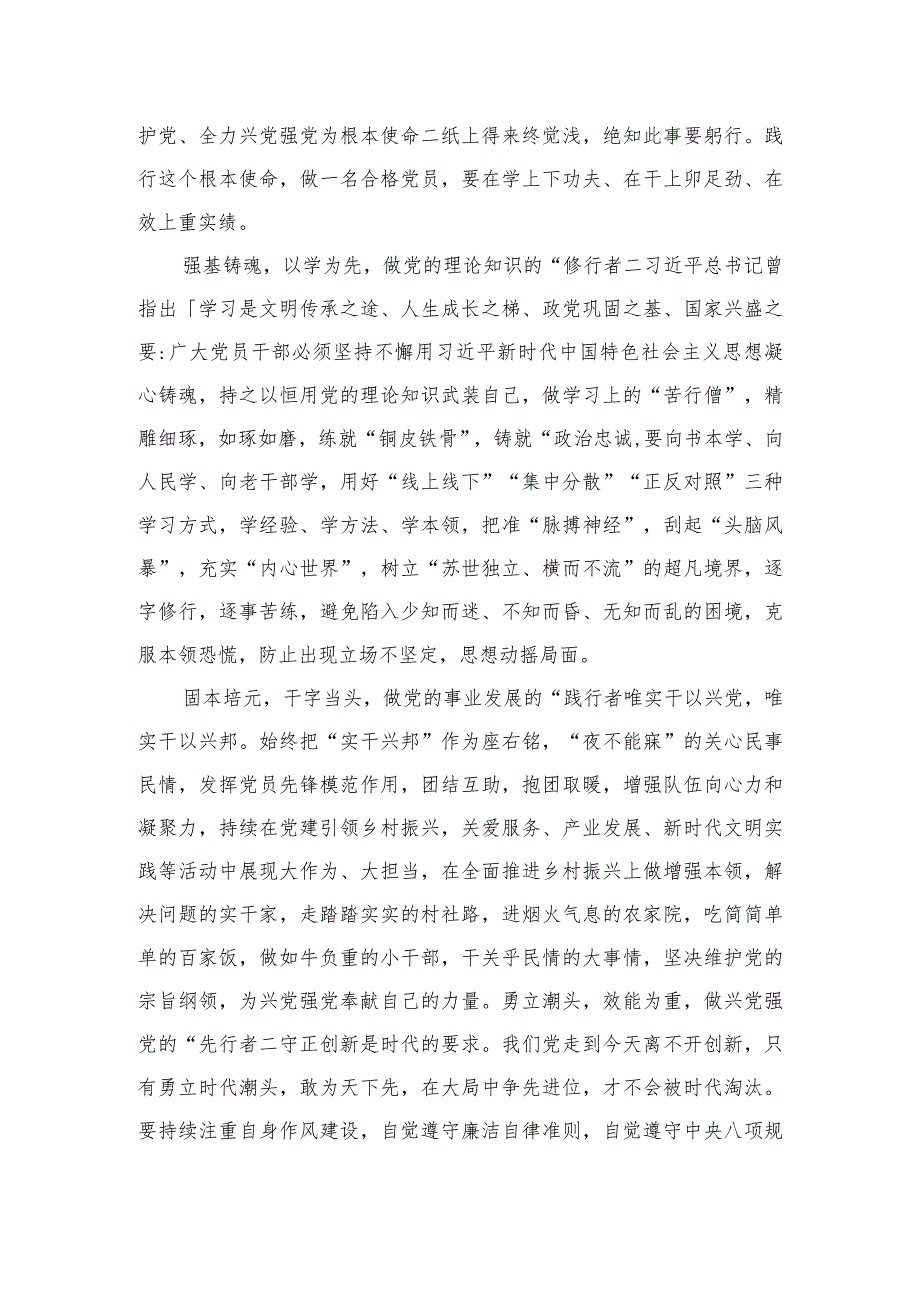 护党、全力兴党强党为根本使命二纸上得来终觉浅，绝知此事要躬行。践
行这个根本使命，做一名合格党员，要在学上下功夫、在干上卯足劲、在
效上重实绩。
强基铸魂，以学为先，做党的理论知识的“修行者二习近平总书记曾
指出「学习是文明传承之途、人生成长之梯、政党巩固之基、国家兴盛之
要:广大党员干部必须坚持不懈用习近平新时代中国特色社会主义思想凝
心铸魂，持之以恒用党的理论知识武装自己，做学习上的“苦行僧”，精
雕细琢，如琢如磨，练就“铜皮铁骨”，铸就“政治忠诚,要向书本学、向
人民学、向老干部学，用好“线上线下”“集中分散”“正反对照”三种
学习方式，学经验、学方法、学本领，把准“脉搏神经”，刮起“头脑风
暴”，充实“内心世界”，树立“苏世独立、横而不流”的超凡境界，逐
字修行，逐事苦练，避免陷入少知而迷、不知而昏、无知而乱的困境，克
服本领恐慌，防止出现立场不坚定，思想动摇局面。
固本培元，干字当头，做党的事业发展的“践行者唯实干以兴党，唯
实干以兴邦。始终把“实干兴邦”作为座右铭，“夜不能寐”的关心民事
民情，发挥党员先锋模范作用，团结互助，抱团取暖，增强队伍向心力和
凝聚力，持续在党建引领乡村振兴，关爱服务、产业发展、新时代文明实
践等活动中展现大作为、大担当，在全面推进乡村振兴上做增强本领，解
决问题的实干家，走踏踏实实的村社路，进烟火气息的农家院，吃简简单
单的百家饭，做如牛负重的小干部，干关乎民情的大事情，坚决维护党的
宗旨纲领，为兴党强党奉献自己的力量。勇立潮头，效能为重，做兴党强
党的“先行者二守正创新是时代的要求。我们党走到今天离不开创新，只
有勇立时代潮头，敢为天下先，在大局中争先进位，才不会被时代淘汰。
要持续注重自身作风建设，自觉遵守廉洁自律准则，自觉遵守中央八项规